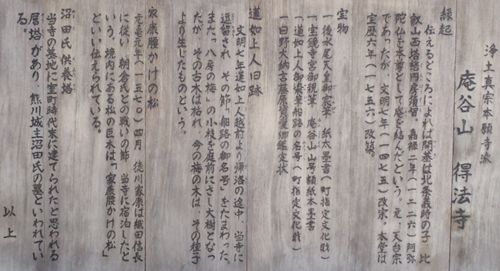 浄土真宗本願寺派
庵谷山 得法寺
縁起
伝えるところによれば開基は北条義時の子 比
叡山西塔慈門房須智 嘉禄二年(一二二六)阿弥
陀仏を本尊として庵を結んだという。元 天台宗
であったが、文明七年(一四七五)改宗、本堂は
宝暦六年(一七五六)改築。
宝物
一後水尾天皇御宸筆 紙本墨書(町指定文化財)
一宝鏡寺宮御親筆 庵谷山山号額紙本墨書
一道如上人御染筆船路の名号(町指定文化財)
一日野大納言藤原資愛卿鑑定状
道如上人旧跡
文明七年道如上人越前より帰洛の途中、当寺に
逗留され、その節「船路の御名号」をたまわった。
また「八房の梅」の小枝を庭前にさし大樹となっ
たが、その古木は枯れ、今の梅の木は、その種子
より生じたものという。
家康腰かけの松
元亀元年(一五七〇)四月 徳川家康は織田信長
に従い、朝倉氏との戦いの節、当寺に宿泊したと
いう。境内にある松の巨木は「家康腰かけの松」
といい伝えられている。
沼田氏 供養塔
当寺の墓地に室町時代末に建てられたと思われる
層塔があり、熊川城主沼田氏の墓といわれてい
る。
以上